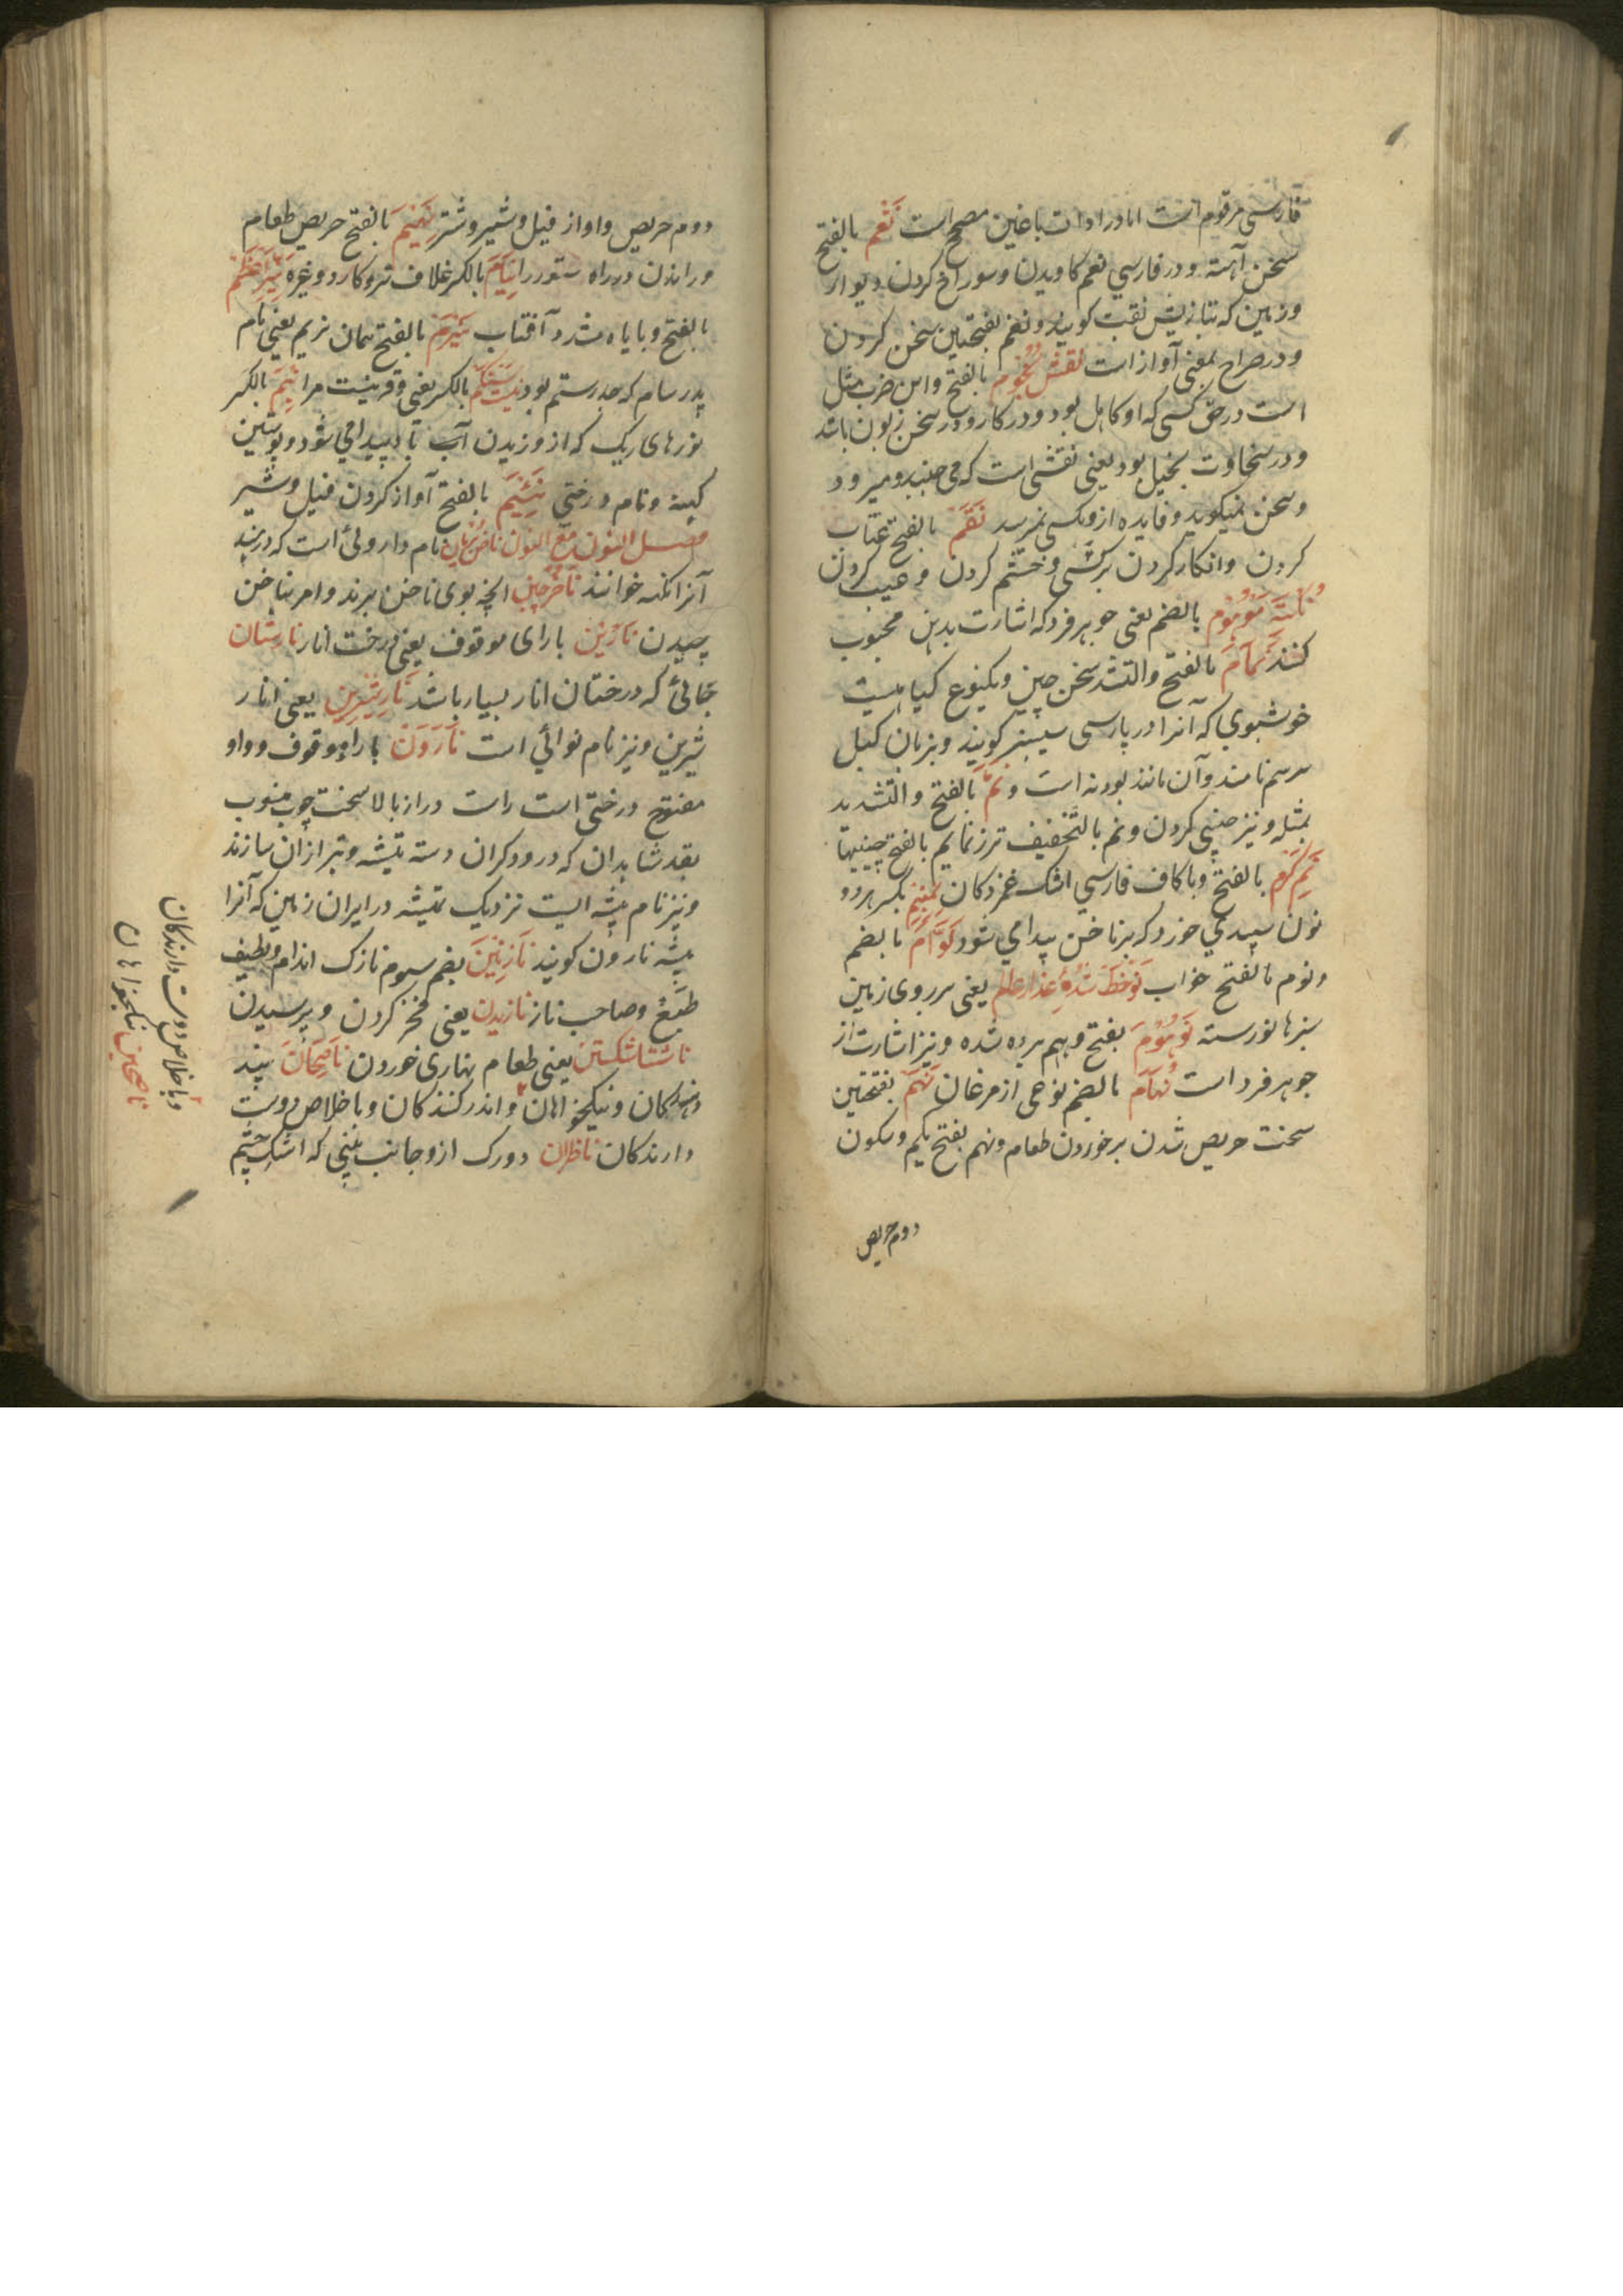 فارسی مرقوم است اما در ادات باغین مصحح است نغم بالفتح
سخن آهسته و در فارسی نغم کاویدن و سوراخ کردن دیوار
و زمین که بتازیش نقب کویند و نغم بفتحتین سخن کردن
و در صراح بمعنی آواز است نقش نجوم بالفتح و این ضرب مثل
است در حق کسی که او کاهل بود و در کار و در سخن زبون باشد
و در سخاوت بخیل بود یعنی نقشی است که می جنبد و میرود
و سخن نمیکوید و فایده ازو بکسی نمیرسد نقم بالفتح عتاب
کردن و انکار کردن بر کسی و خشم کردن و عیب کردن
نکته موهوم بالضم یعنی جوهر فرد که اشارت بدهن محبوب
کنند نمام بالفتح والتشدید سخن چین و یکنوع کیاهیست
خوشبوی که آنرا در پارسی سیسنبر کویند و بزبان کیل
سرسم نامند و آن مانند پودنه است و نم بالفتح والتشدید
بمثله و نیز سخن چینی کردن و نم بالتخفیف تر
بالفتح و با کاف فارسی اشک غمزدکان نمنم بکسر هر دو
نون سپیدی خورد که بر ناخن پیدا می شود نوام بالضم
و نوم بالفتح خواب نوخط شده عذار عالم یعنی بر روی زمین
سبزها نورسته نوهوم بفتح وهم برده شده و نیز اشارت از
جوهر فرد است نهام بالضم نوعی از مرغان نهم بفتحتین
سخت حریص شدن بر خوردن طعام و نهم بفتح یکم و سکون
دوم حریص
دوم حریص و اواز فیل و شیر و شتر نهیم بالفتح حریص طعام
و راندن در راه ستور را نیام بالکسر غلاف تیر و کارد و غیره نیر اعظم
بالفتح و بایاء مشدد آفتاب نیرم بالفتح همان نریم یعنی نام
پدر سام که جد رستم بود نیستکم بالکسر یعنی و قرنیست مرا نیم بالکسر
نورهای ریک که از وزیدن آب باد پیدا می شود و پوستین
کهنه و نام درختی نئیم بالفتح آواز کردن فیل و شیر
فصل النون مع النون ناخن پریان نام داروئی است که در هند
آنرا نکه خوانند ناخن چین انچه بوی ناخن برند و امر بناخن
چیدن نارین با رای موقوف یعنی درخت انار نارستان
جائی که درختان انار بسیار باشد نار شیرین یعنی انار
شیرین و نیز نام نوائی است نارون با راء موقوف و واو
مفتوح درختی است راست دراز بالا سخت چوب منسوب
بقد شاهدان که درودکران دسته تیشه و تبر ازان سازند
و نیز نام بیشه ایست نزدیک تمیشه در ایران زمین که آنرا
بیشه نارون کویند نازنین بضم سیوم نازک اندام و لطیف
طبع و صاحب ناز نازیدن یعنی فخر کردن و پرسیدن
ناشتا شکستن یعنی طعام نهاری خوردن ناصحان پند
دهندکان و نیکخواهان و اندرز کنندکان و با خلاص دوست
دارندکان ناظران دو رک از دو جانب بینی که اشک چشم
و با خلاص دوست دارندکان
ناصحین نیکخواهان